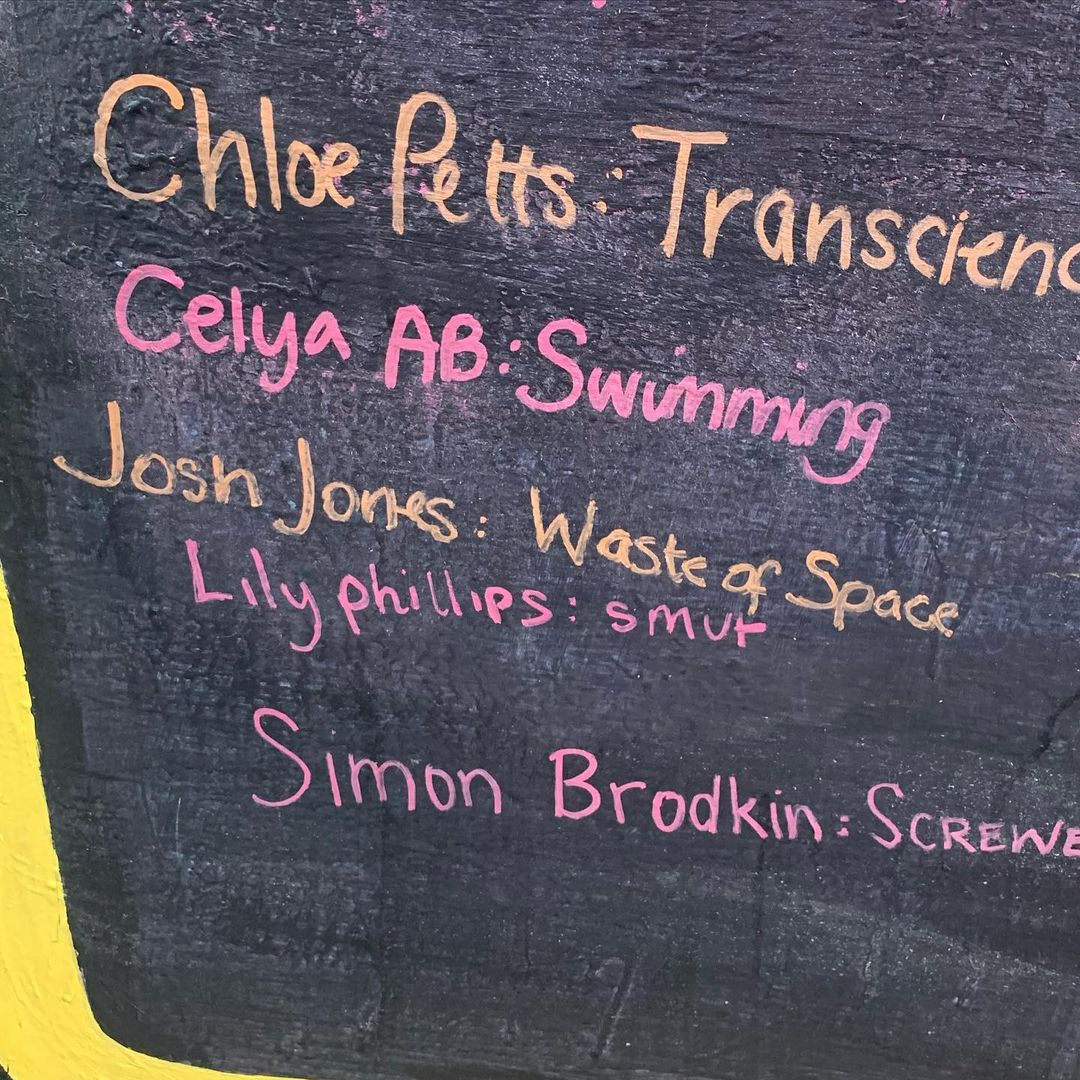 Chloe Petts: Transcienc
Celya AB: Swimming
Josh Jones: Waste of Space
Lily phillips: smut
Simon Brodkin: SCREWE